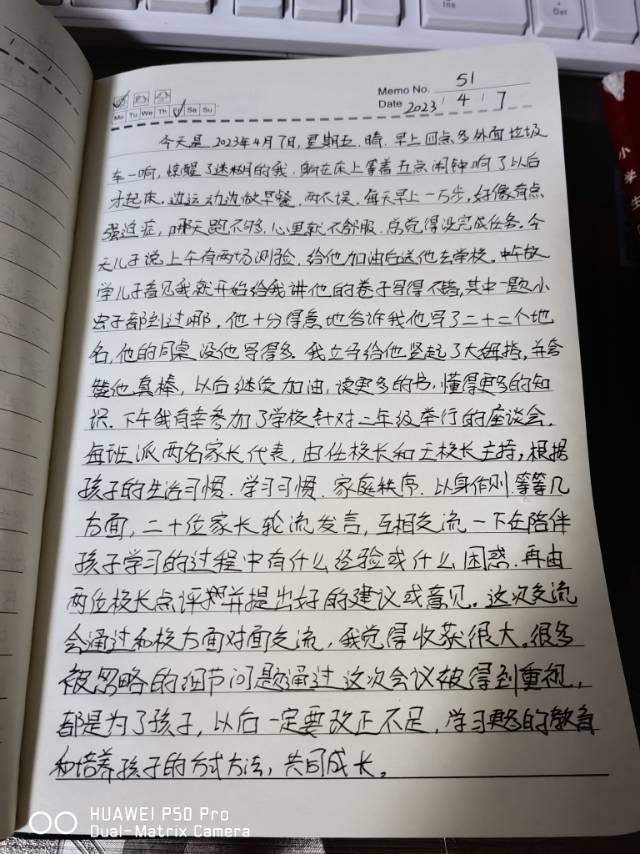 Ins
Del
小学生
Memo No. 51
Mo Tu We Th Fr Sa Su
Date 2023 / 4 / 7
今天是 2023年4月7日,星期五.晴.早上四点多外面垃圾
车一响,惊醒了迷糊的我.躺在床上等着五点闹钟响了以后
才起床.边运动边做早餐,两不误.每天早上一万步,好像有点
强迫症,哪天跑不够,心里就不舒服.总觉得没完成任务.今
天儿子说上午有两场测验,给他加油后送他去学校.中午放
学儿子看见我就开始给我讲他的卷子写得不错,其中一题小
虫子都到过哪,他十分得意地告诉我他写了二十二个地
名,他的同桌没他写得多.我立马给他竖起了大姆指,并夸
赞他真棒,以后继续加油,读更多的书,懂得更多的知
识.下午我有幸参加了学校针对二年级举行的座谈会,
每班派两名家长代表,由任校长和王校长主持,根据
孩子的生活习惯.学习习惯.家庭秩序.以身作则.等等几
方面,二十位家长轮流发言,互相交流一下在陪伴
孩子学习的过程中有什么经验或什么困惑.再由
两位校长点评并提出好的建议或意见。这次交流
会通过和校方面对面交流,我觉得收获很大.很多
被忽略的细节问题通过这次会议被得到重视,
都是为了孩子,以后一定要改正不足,学习更多的教育
和培养孩子的方式方法,共同成长。
HUAWEI P50 Pro
Dual-Matrix Camera